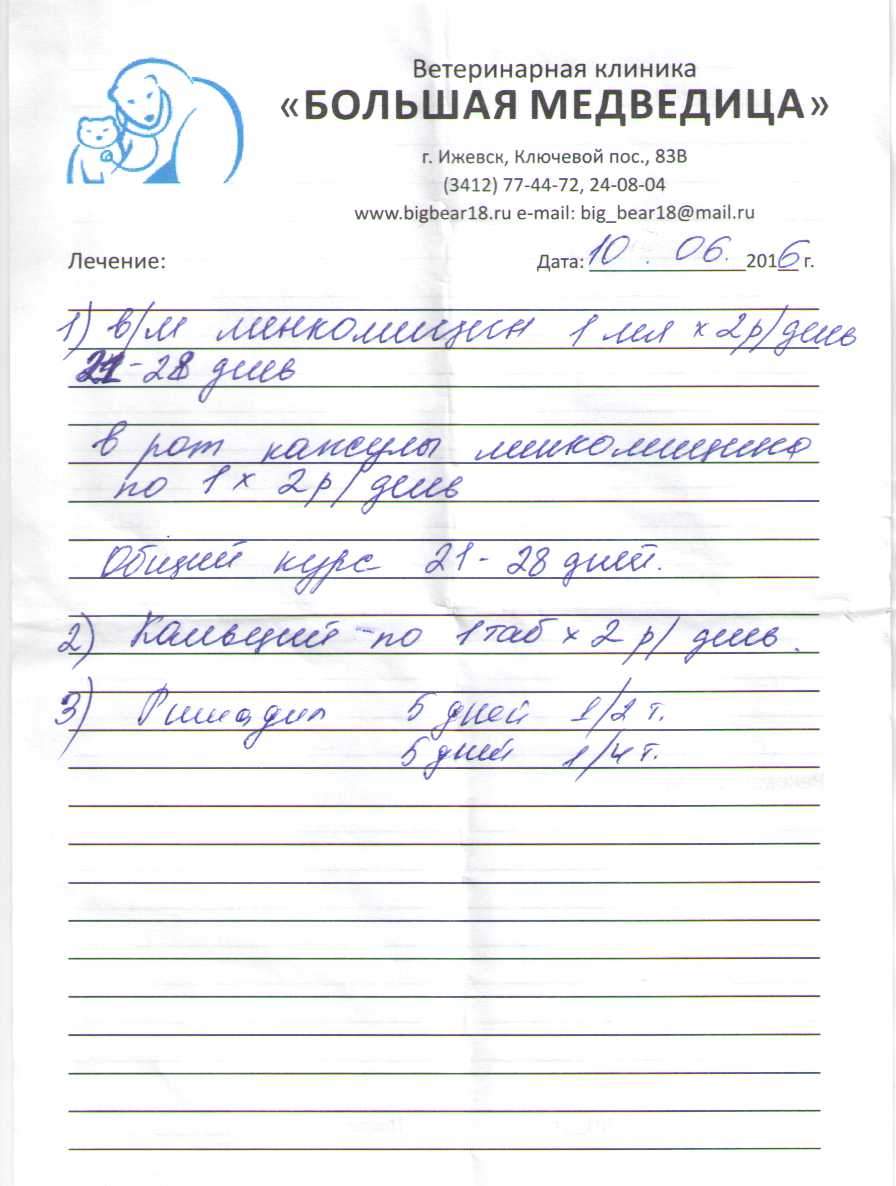 Ветеринарная клиника
«БОЛЬШАЯ МЕДВЕДИЦА»
г. Ижевск, Ключевой пос., 83В
(3412) 77-44-72, 24-08-04
www.bigbear18.ru e-mail: big_bear18@mail.ru
Лечение: Дата: 10 . 06. 2016 г.
1) в/м линкомицин 1 мл х 2р/день
21-28 день
в рот капсулы линкомицина
по 1 х 2р/день
Общий курс 21-28 дней.
2) Кальций - по 1 таб х 2 р/ день.
3) Римадил 5 дней 1/2 т.
5 дней 1/4 т.